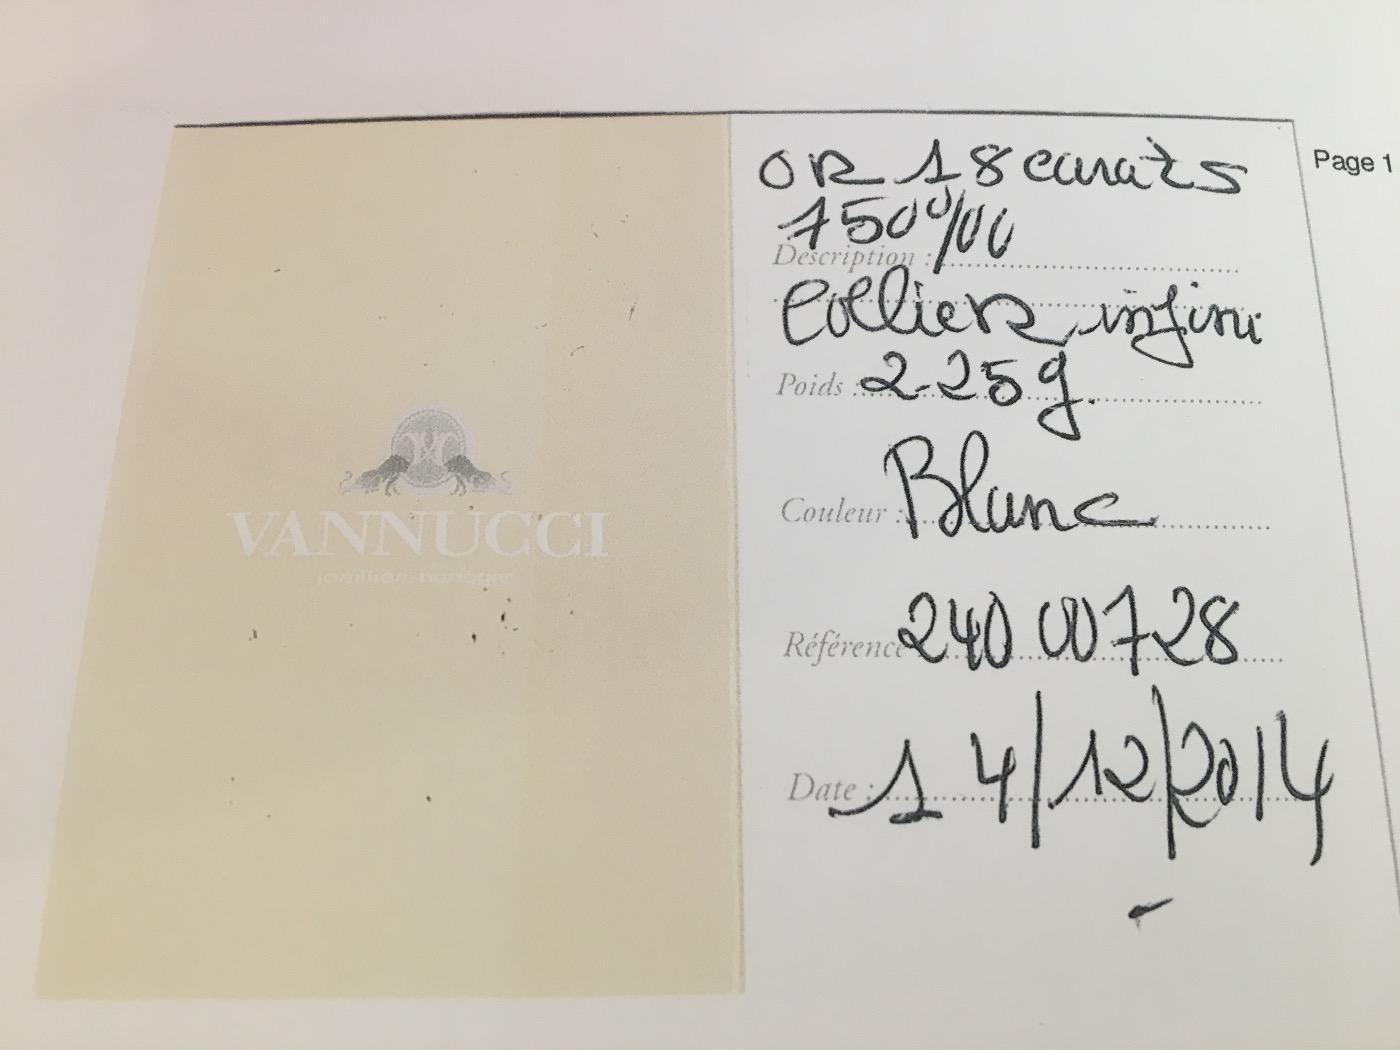 VANNUCCI
joaillier-horloger
Page 1
OR 18 carats
750‰
Description :
Collier infini
Poids : 2.25g.
Couleur : Blanc
Référence 24000728
Date : 14/12/2014